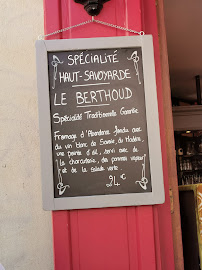 SPÉCIALITÉ
HAUT-SAVOYARDE
LE BERTHOUD
Spécialité Traditionnelle Garantie
Fromage d'Abondance fondu avec
du vin blanc de Savoie, du Madère,
une pointe d'ail, servi avec de
la charcuterie, des pommes vapeur
et de la salade verte.
24 €